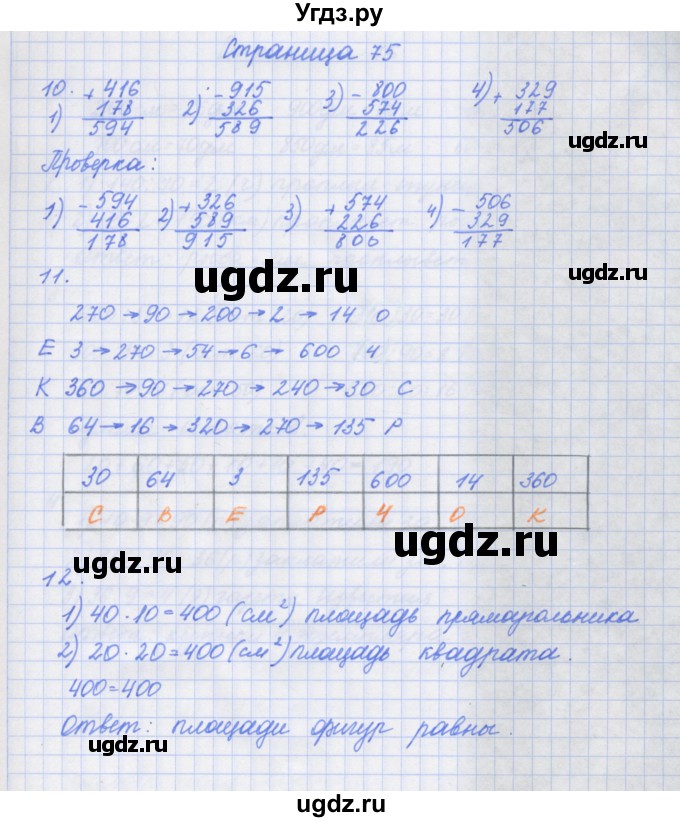 Угдз.ру
Страница 75
10.
1) + 416
178
594
2) - 915
326
589
3) - 800
574
226
4) + 329
177
506
Проверка:
1) - 594
416
178
2) + 326
589
915
3) + 574
226
800
4) - 506
329
177
11.
270 → 90 → 200 → 2 → 14 О
Е 3 → 270 → 54 → 6 → 600 Ч
К 360 → 90 → 270 → 240 → 30 С
В 64 → 16 → 320 → 270 → 135 Р
30 64 3 135 600 14 360
С В Е Р Ч О К
12.
1) 40 · 10 = 400 (см²) площадь прямагольника
2) 20 · 20 = 400 (см²) площадь квадрата.
400 = 400
Ответ: площади фигур равны.
ugdz.ru
ugdz.ru
ugdz.ru
ugdz.ru
ugdz.ru
ugdz.ru
ugdz.ru
ugdz.ru
ugdz.ru